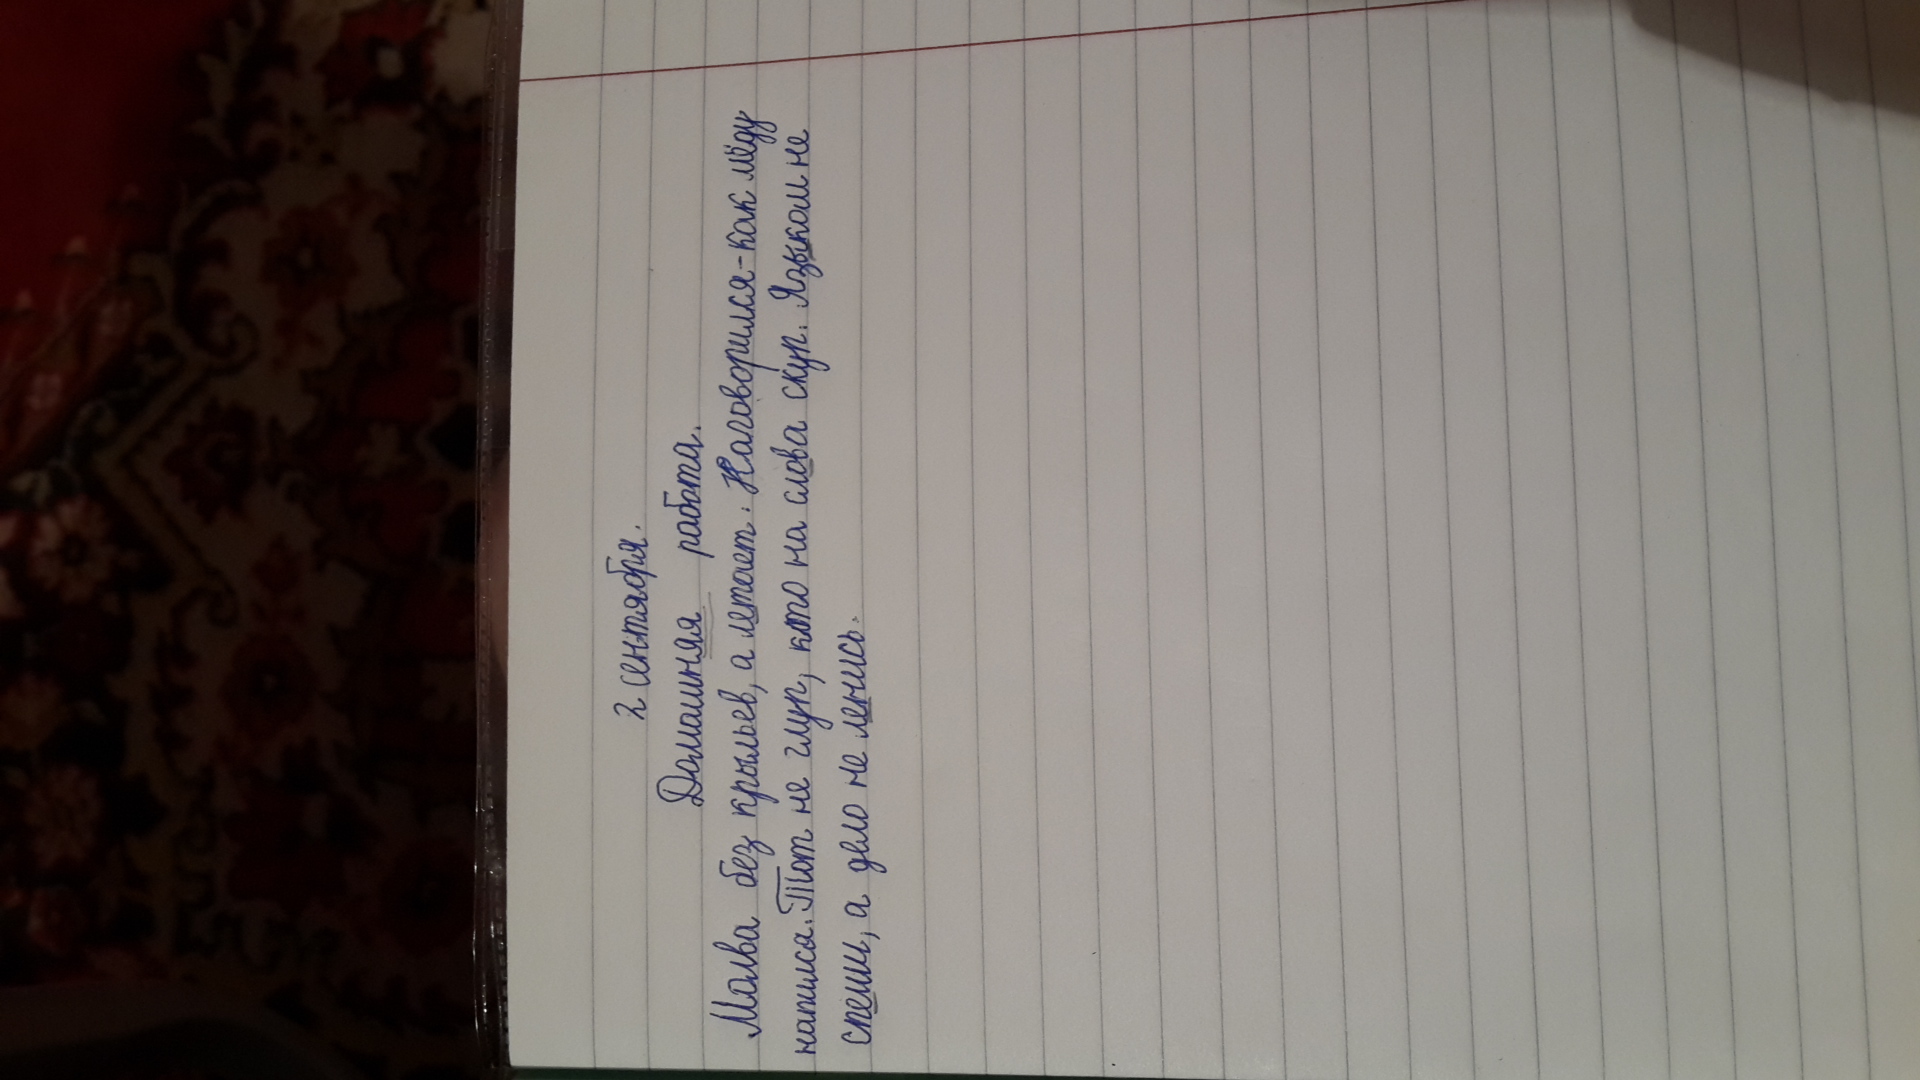 2 сентября.
Домашняя работа.
Молва без крыльев, а летает. Наговорился-как мёду
напился. Тот не глуп, кто на слова скуп. Языком не
спеши, а дело не ленись.